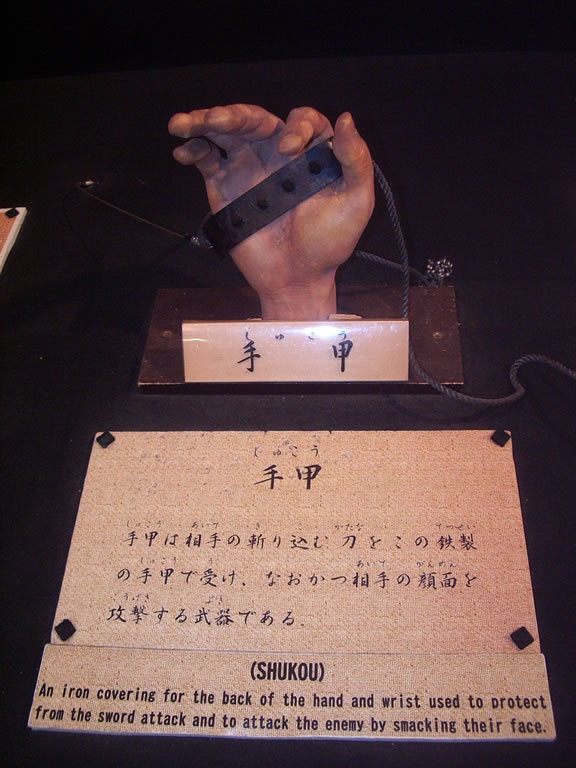 しゅこう
手甲
しゅこう
手甲
しゅこう あいて き こ かたな てつせい
手甲は相手の斬り込む刀をこの鉄製
しゅこう う あいて がんめん
の手甲で受け、なおかつ相手の顔面を
こうげき ぶき
攻撃する武器である.
(SHUKOU)
An iron covering for the back of the hand and wrist used to protect
from the sword attack and to attack the enemy by smacking their face.